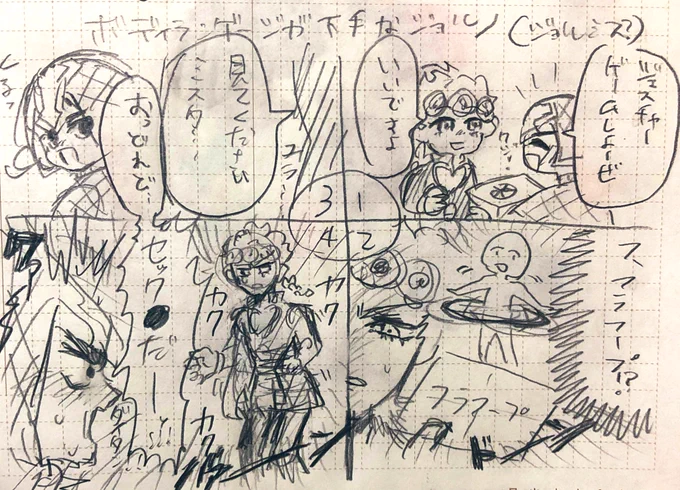 ボディランゲージが下手なジョルノ(ジョルミス?)
ジェスチャー
ゲームしよーぜ
いいですよ
1
2
3
4
フ、フラフープ!?
フラフープ
ドーン
見てください
ミスタ…!
おっどれど…
カク
カク
カク
カク
セック●だーッ!